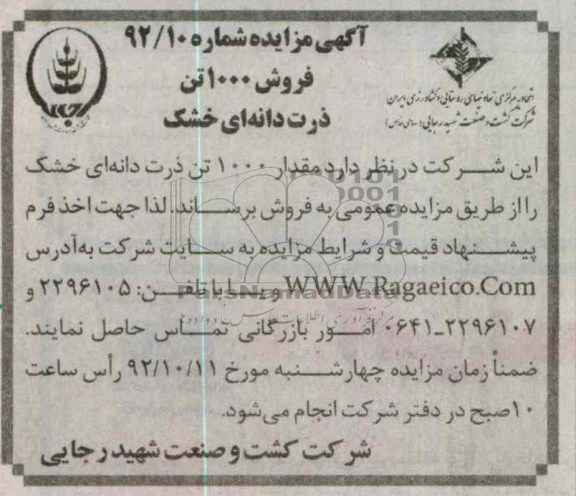 آگهی مزایده شماره ۹۲/۱۰
فروش ۱۰۰۰ تن
ذرت دانه‌ای خشک
اتحادیه مرکزی تعاونیهای روستایی و کشاورزی ایران
شرکت کشت و صنعت شهید رجایی (سهامی خاص)
این شرکت در نظر دارد مقدار ۱۰۰۰ تن ذرت دانه‌ای خشک
را از طریق مزایده عمومی به فروش برساند. لذا جهت اخذ فرم
پیشنهاد قیمت و شرایط مزایده به سایت شرکت به آدرس
WWW.Ragaeico.Com و یا با تلفن: ۲۲۹۶۱۰۵ و
۰۶۴۱-۲۲۹۶۱۰۷ امور بازرگانی تماس حاصل نمایند.
ضمناً زمان مزایده چهارشنبه مورخ ۹۲/۱۰/۱۱ رأس ساعت
۱۰ صبح در دفتر شرکت انجام می‌شود.
شرکت کشت و صنعت شهید رجایی
ParsNamadData